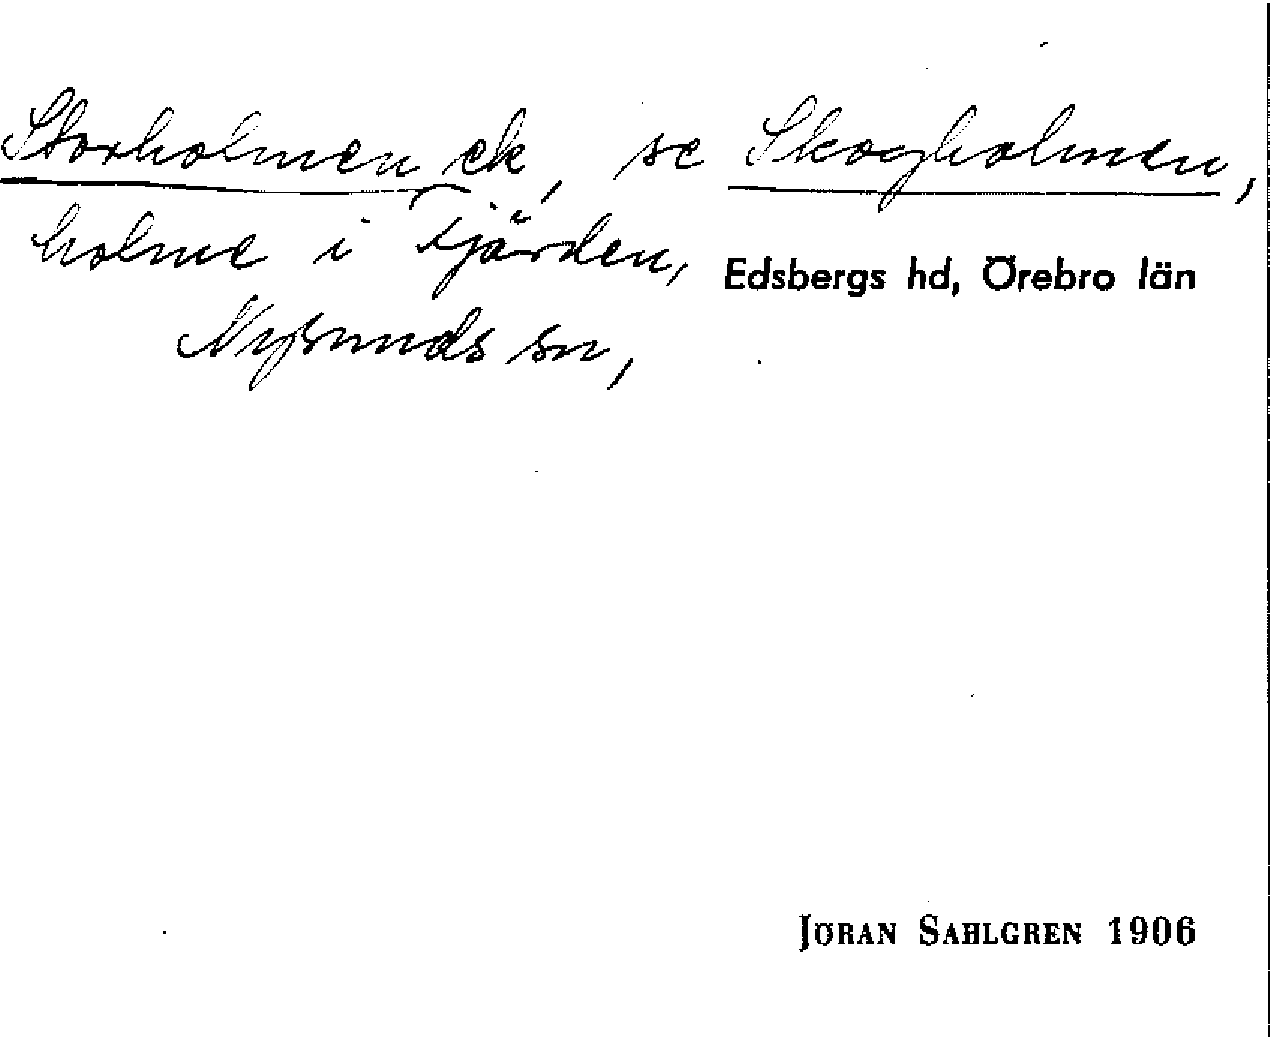 Storholmen ek, se Skogholmen,
holme i Fjärden,
Edsbergs hd, Örebro län
Nysunds sn,
JÖRAN SAHLGREN 1906